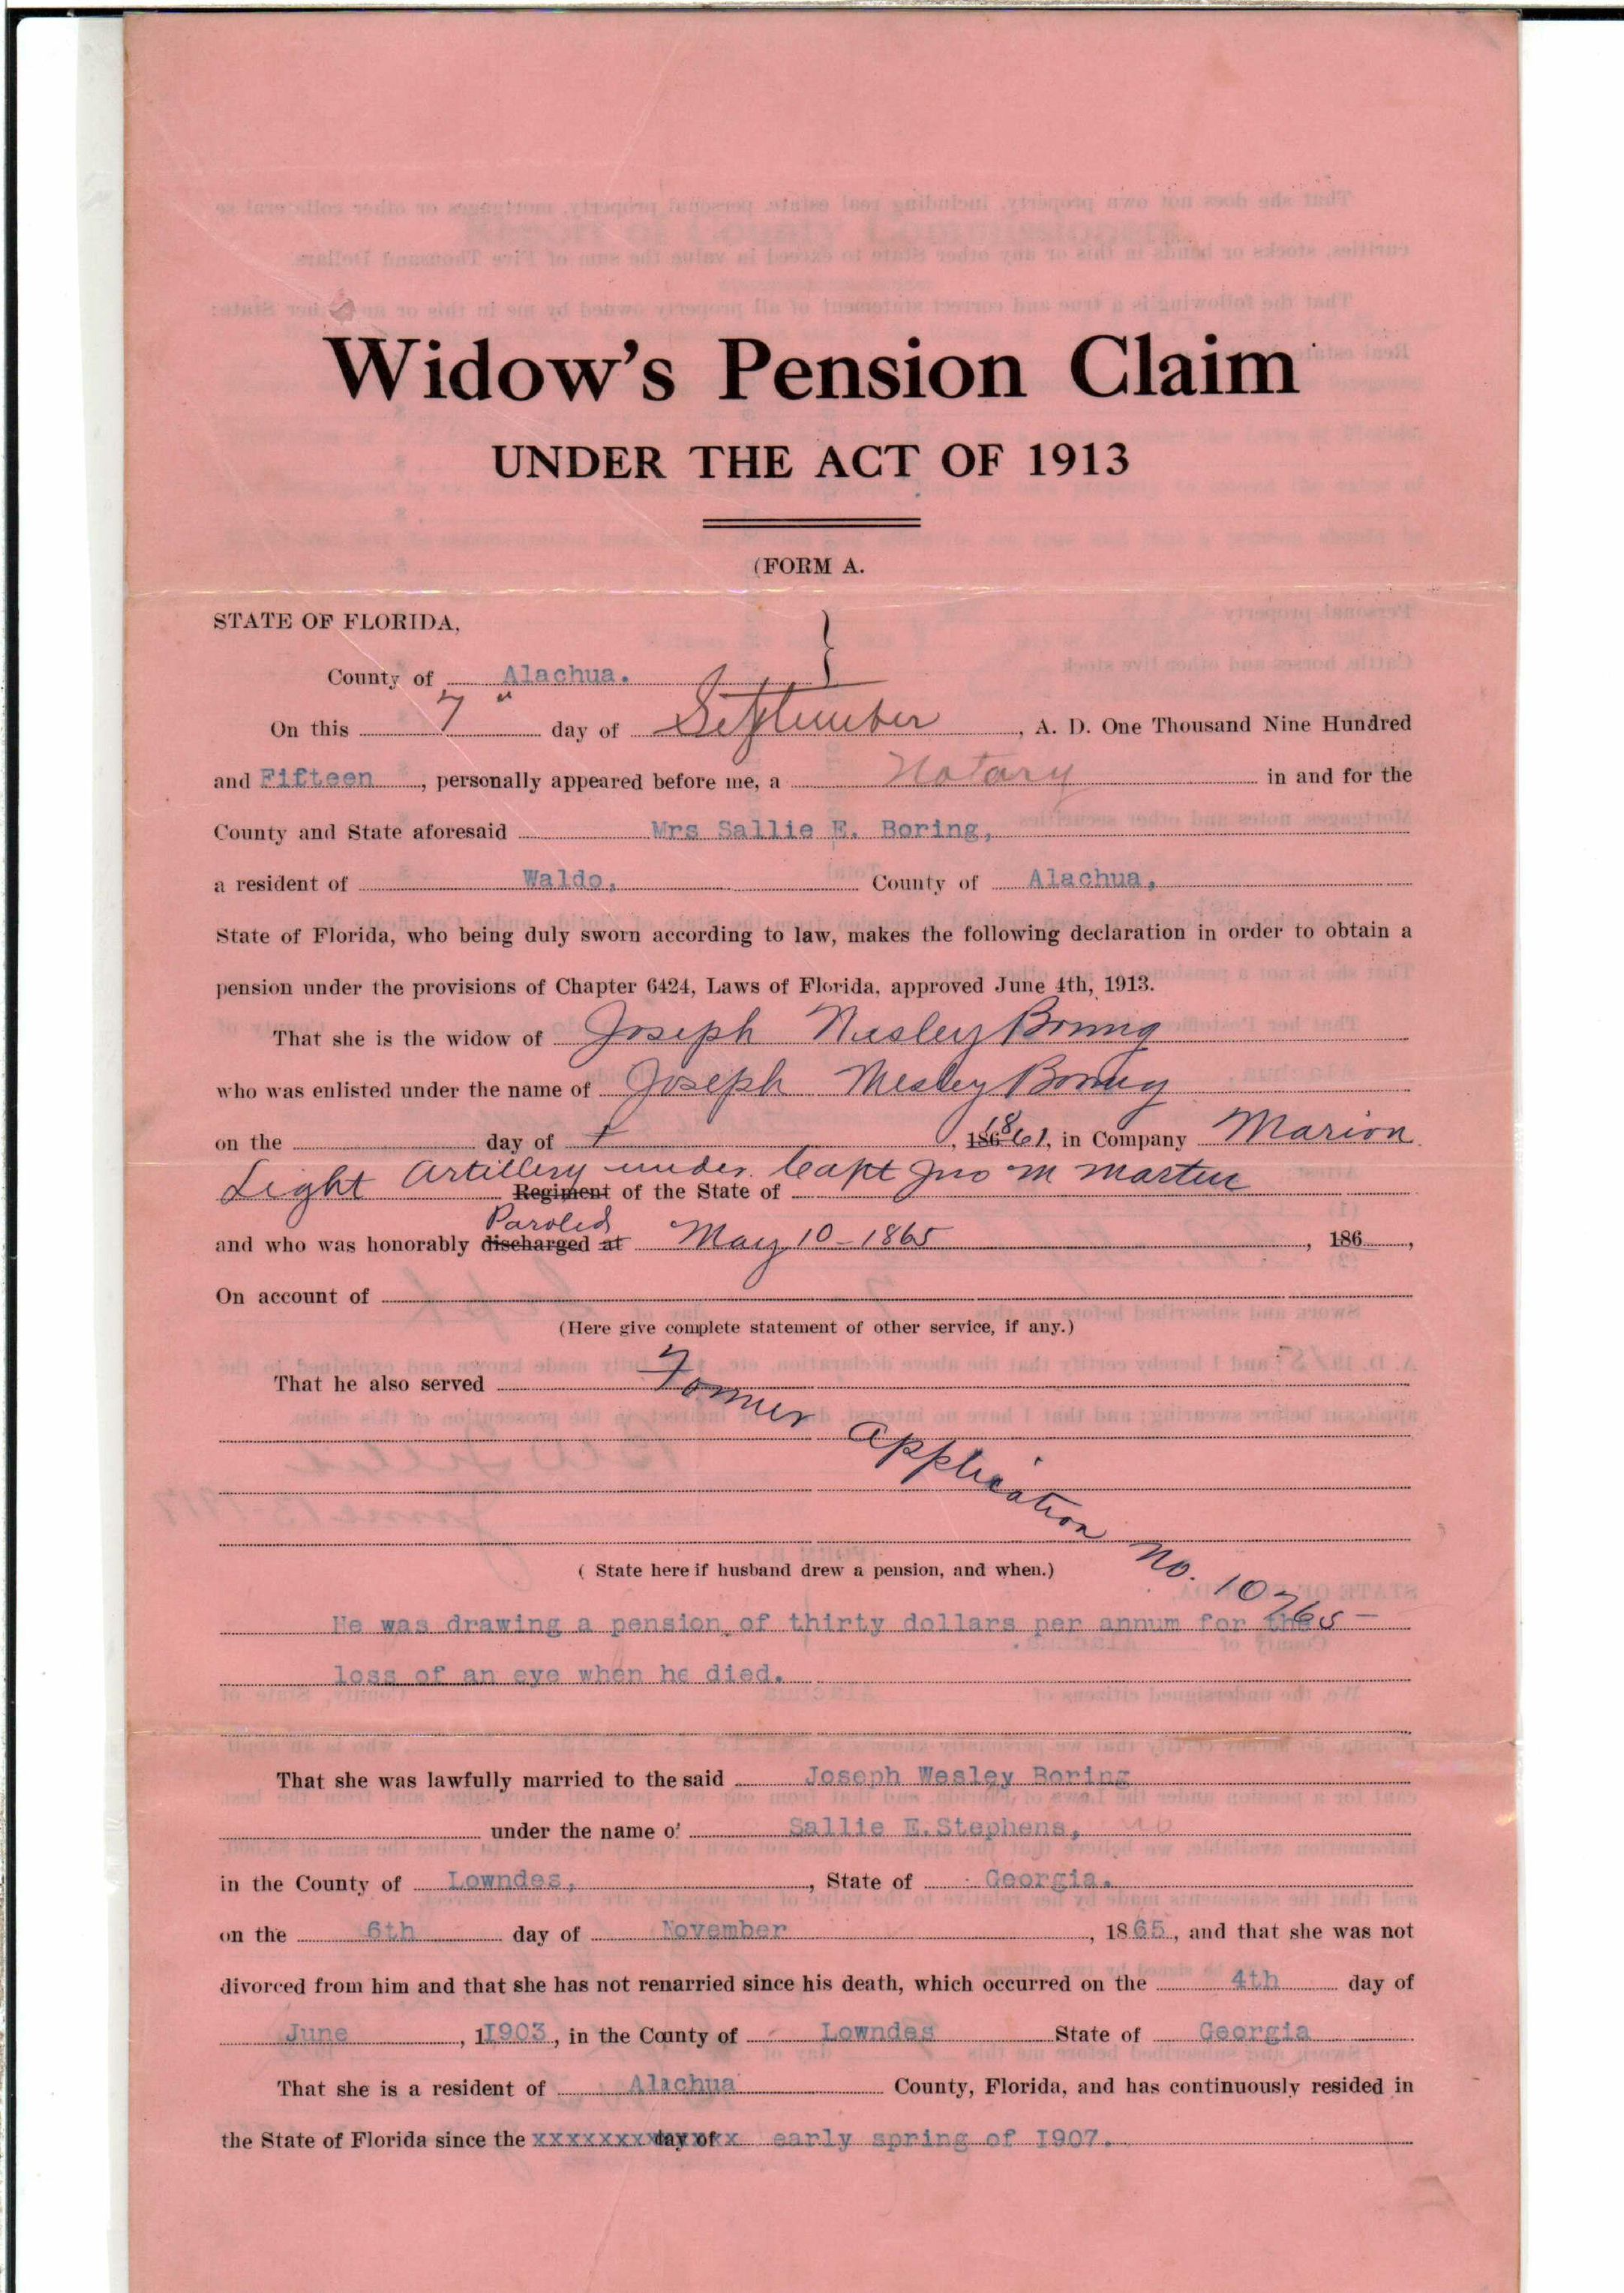 Widow's Pension Claim
UNDER THE ACT OF 1913
(FORM A.
STATE OF FLORIDA,
County of Alachua.
On this 7" day of September, A. D. One Thousand Nine Hundred
and Fifteen, personally appeared before me, a Notary in and for the
County and State aforesaid Mrs Sallie E. Boring,
a resident of Waldo, County of Alachua,
State of Florida, who being duly sworn according to law, makes the following declaration in order to obtain a
pension under the provisions of Chapter 6424, Laws of Florida, approved June 4th, 1913.
That she is the widow of Joseph Wesley Boring
who was enlisted under the name of Joseph Wesley Boring
on the day of , 186 1861, in Company Marion
Light Artillery under Capt Jno M Martin
Regiment of the State of
Paroled
and who was honorably discharged at May 10-1865, 186 ,
On account of
(Here give complete statement of other service, if any.)
That he also served
Former Application No. 10765-
( State here if husband drew a pension, and when.)
He was drawing a pension of thirty dollars per annum for the
loss of an eye when he died.
That she was lawfully married to the said Joseph Wesley Boring
under the name of Sallie E.Stephens,
in the County of Lowndes, , State of Georgia.
on the 6th day of November, 1865, and that she was not
divorced from him and that she has not renarried since his death, which occurred on the 4th day of
June, 11903, in the County of Lowndes State of Georgia
That she is a resident of Alachua County, Florida, and has continuously resided in
the State of Florida since the xxxxxxxxxxxxx day of early spring of 1907.